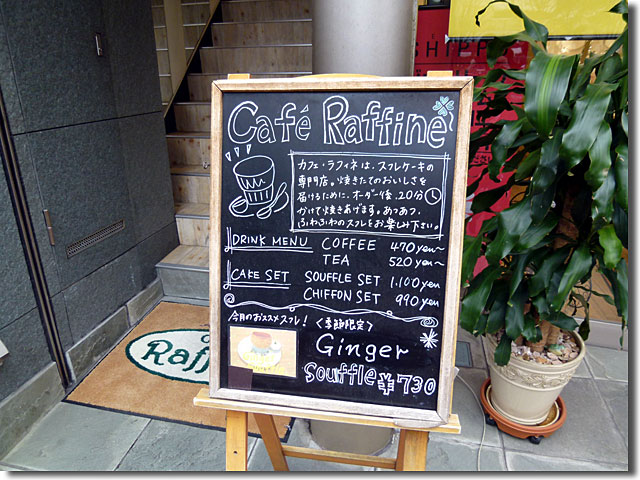 SHIPPO
Café Raffiné
カフェ・ラフィネは、スフレケーキの
専門店。焼きたてのおいしさを
届けるために、オーダー後、20分
かけて焼きあげます。あつあつ、
ふわふわのスフレをお楽しみ下さい。
DRINK MENU COFFEE 470 yen~
TEA 520 yen~
CAKE SET SOUFFLE SET 1.100 yen
CHIFFON SET 990 yen
今月のおススメスフレ! <季節限定>
Ginger
Souffle ¥730
Raff